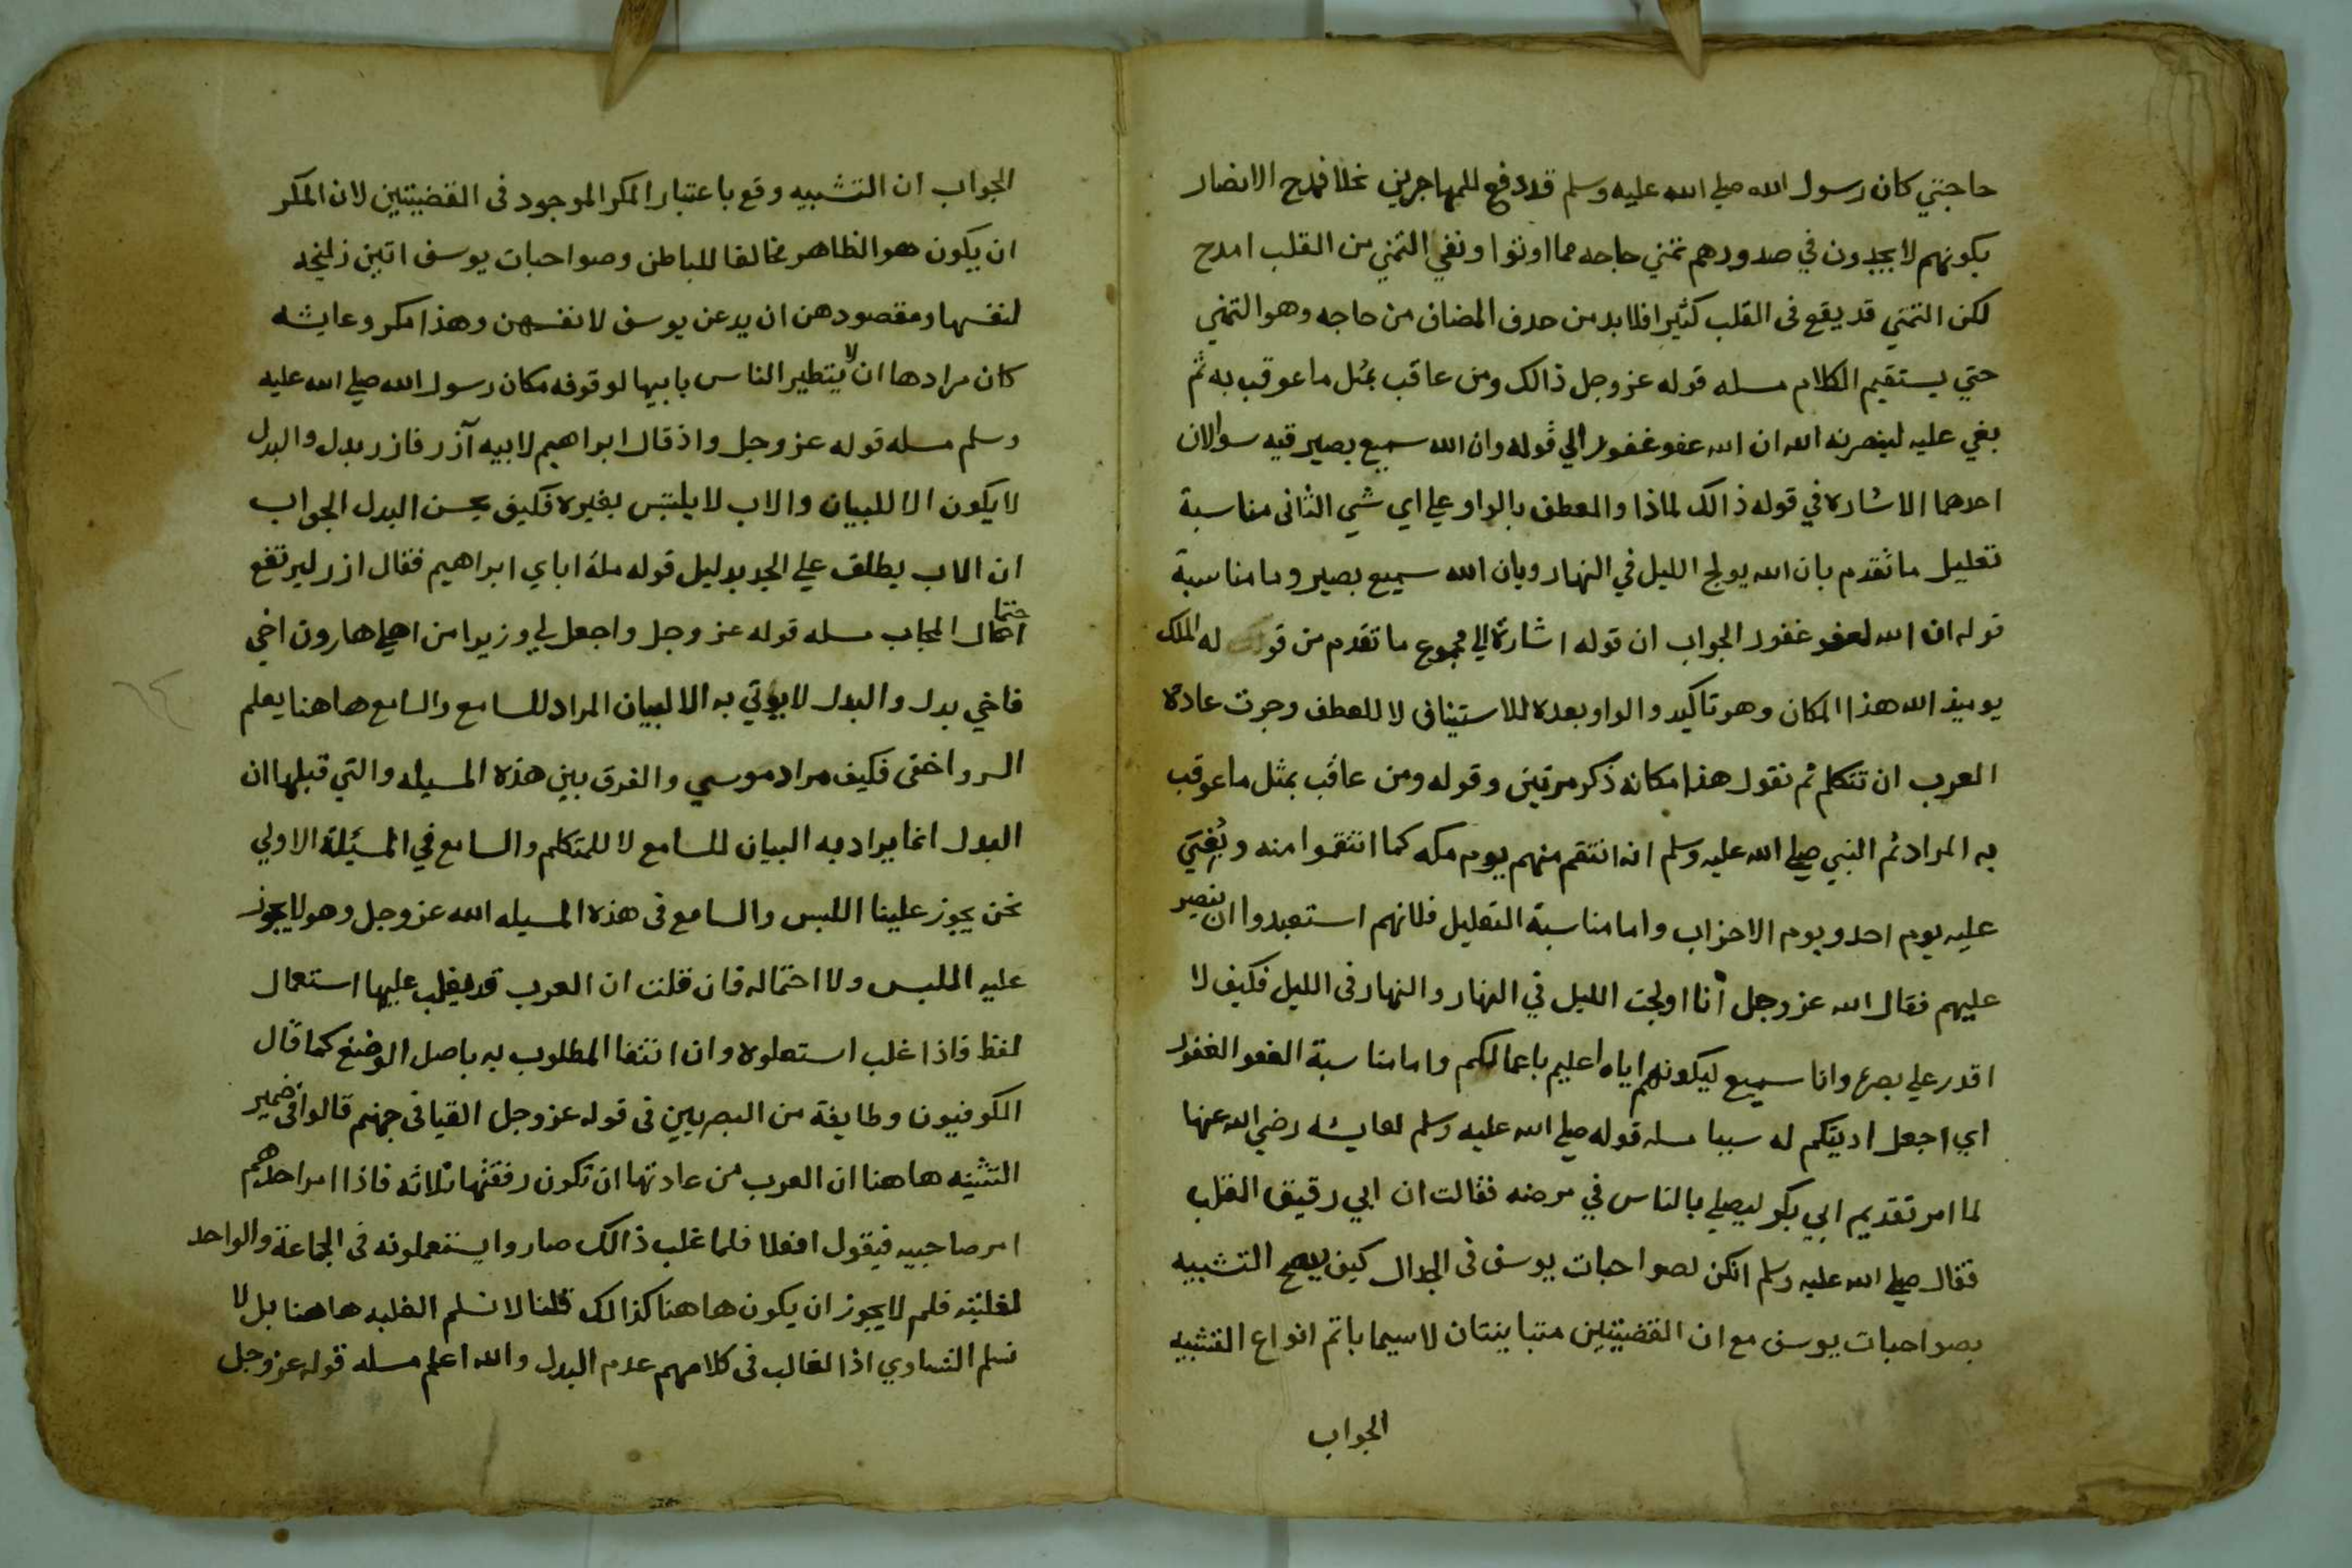 حاجتي كان رسول الله صلي الله عليه وسلم قد دفع للمهاجرين نخلا فمدح الانصار
بكونهم لا يجدون في صدورهم تمني حاجه مما اوتوا ونفي التمني من القلب امدح
لكن التمني قد يقع فى القلب كثيرا فلا بد من حدف المضاف من حاجه وهو التمني
حتي يستقيم الكلام مسله قوله عز وجل ذالك ومن عاقب بمثل ما عوقب به ثم
بغي عليه لينصرنه الله ان الله عفو غفور الي قوله وان الله سميع بصير فيه سوالان
احدهما الاشاره في قوله ذالك لماذا والعطف بالواو علي اي شي الثانى مناسبة
تعليل ما تقدم بان الله يولج الليل في النهار وبان الله سميع بصير وما مناسبة
قوله ان الله لعفو غفور الجواب ان قوله اشارة الي مجموع ما تقدم من قوله له الملك
يوميذ لله هذا المكان وهو تاكيد والواو بعده للاستينافى لا للعطف وجرت عادة
العرب ان تتكلم ثم تقول هذا مكانه ذكر مرتين وقوله ومن عاقب بمثل ما عوقب
به المراد ثم النبي صلي الله عليه وسلم انه انتقم منهم يوم مكه كما انتقموا منه وبُغِيَ
عليه يوم احد ويوم الاحزاب واما مناسبة التعليل فلانهم استبعدوا ان ينصر
عليهم فقال الله عز وجل انا اولجت الليل في النهار والنهار فى الليل فكيف لا
اقدر علي نصره وانا سميع ليكونهم اياه اعليم باعمالكم واما مناسبة العفو الغفور
اي اجعل اديتكم له سببا مسله قوله صلي الله عليه وسلم لعايشه رضي الله عنها
لما امر تقديم ابي بكر ليصلي بالناس في مرضه فقالت ان ابي رقيق القلب
فقال صلي الله عليه وسلم انكن لصواحبات يوسف فى الجدال كيف يصح التشبيه
بصواحبات يوسف مع ان القضيتين متباينتان لا سيما باتم انواع التشبيه
الجواب
الجواب ان التشبيه وقع باعتبار المكر الموجود فى القضيتين لان المكر
ان يكون هو الظاهر مخالفا للباطن وصواحبات يوسف اتين زليخه
لنفسها ومقصودهن ان يدعن يوسف لانفسهن وهذا مكر وعايشه
كان مرادها ان لا يتطير الناس بابيها لوقوفه مكان رسول الله صلي الله عليه
وسلم مسله قوله عز وجل واذ قال ابراهيم لابيه آزر فازر بدل والبدل
لا يكون الا للبيان والاب لا يلتبس بغيره فكيف يحسن البدل الجواب
ان الاب يطلق علي الجد بدليل قوله ملة اباي ابراهيم فقال ازر ليرتفع
احتمال المجاب مسله قوله عز وجل واجعل لي وزيرا من اهلي هارون اخي
فاخي بدل والبدل لا يوتي به الا لبيان المراد للسامع والسامع هاهنا يعلم
السر واخفى فكيف مراد موسي والفرق بين هذه المسيله والتي قبلها ان
البدل انما يراد به البيان للسامع لا للمتكلم والسامع في المسئلة الاولي
نحن يجوز علينا اللبس والسامع فى هذه المسيله الله عز وجل وهو لا يجوز
عليه الملبس ولا احتماله فان قلت ان العرب قد يغلب عليها استعمال
لفظ فاذا غلب استعلوه وان انتفا المطلوب به باصل الوضع كما قال
الكوفيون وطايفة من البصريين فى قوله عز وجل القيا فى جهنم قالوا فى ضمير
التثنيه هاهنا ان العرب من عادتها ان تكون رفقتها ثلاثه فاذا امر احدهم
امر صاحبيه فيقول افعلا فلما غلب ذالك صاروا يستعملونه فى الجماعة والواحد
لغلبته فلم لا يجوز ان يكون هاهنا كذالك قلنا لا نسلم الغلبه هاهنا بل لا
نسلم التساوي اذ الغالب فى كلامهم عدم البدل والله اعلم مسله قوله عز وجل